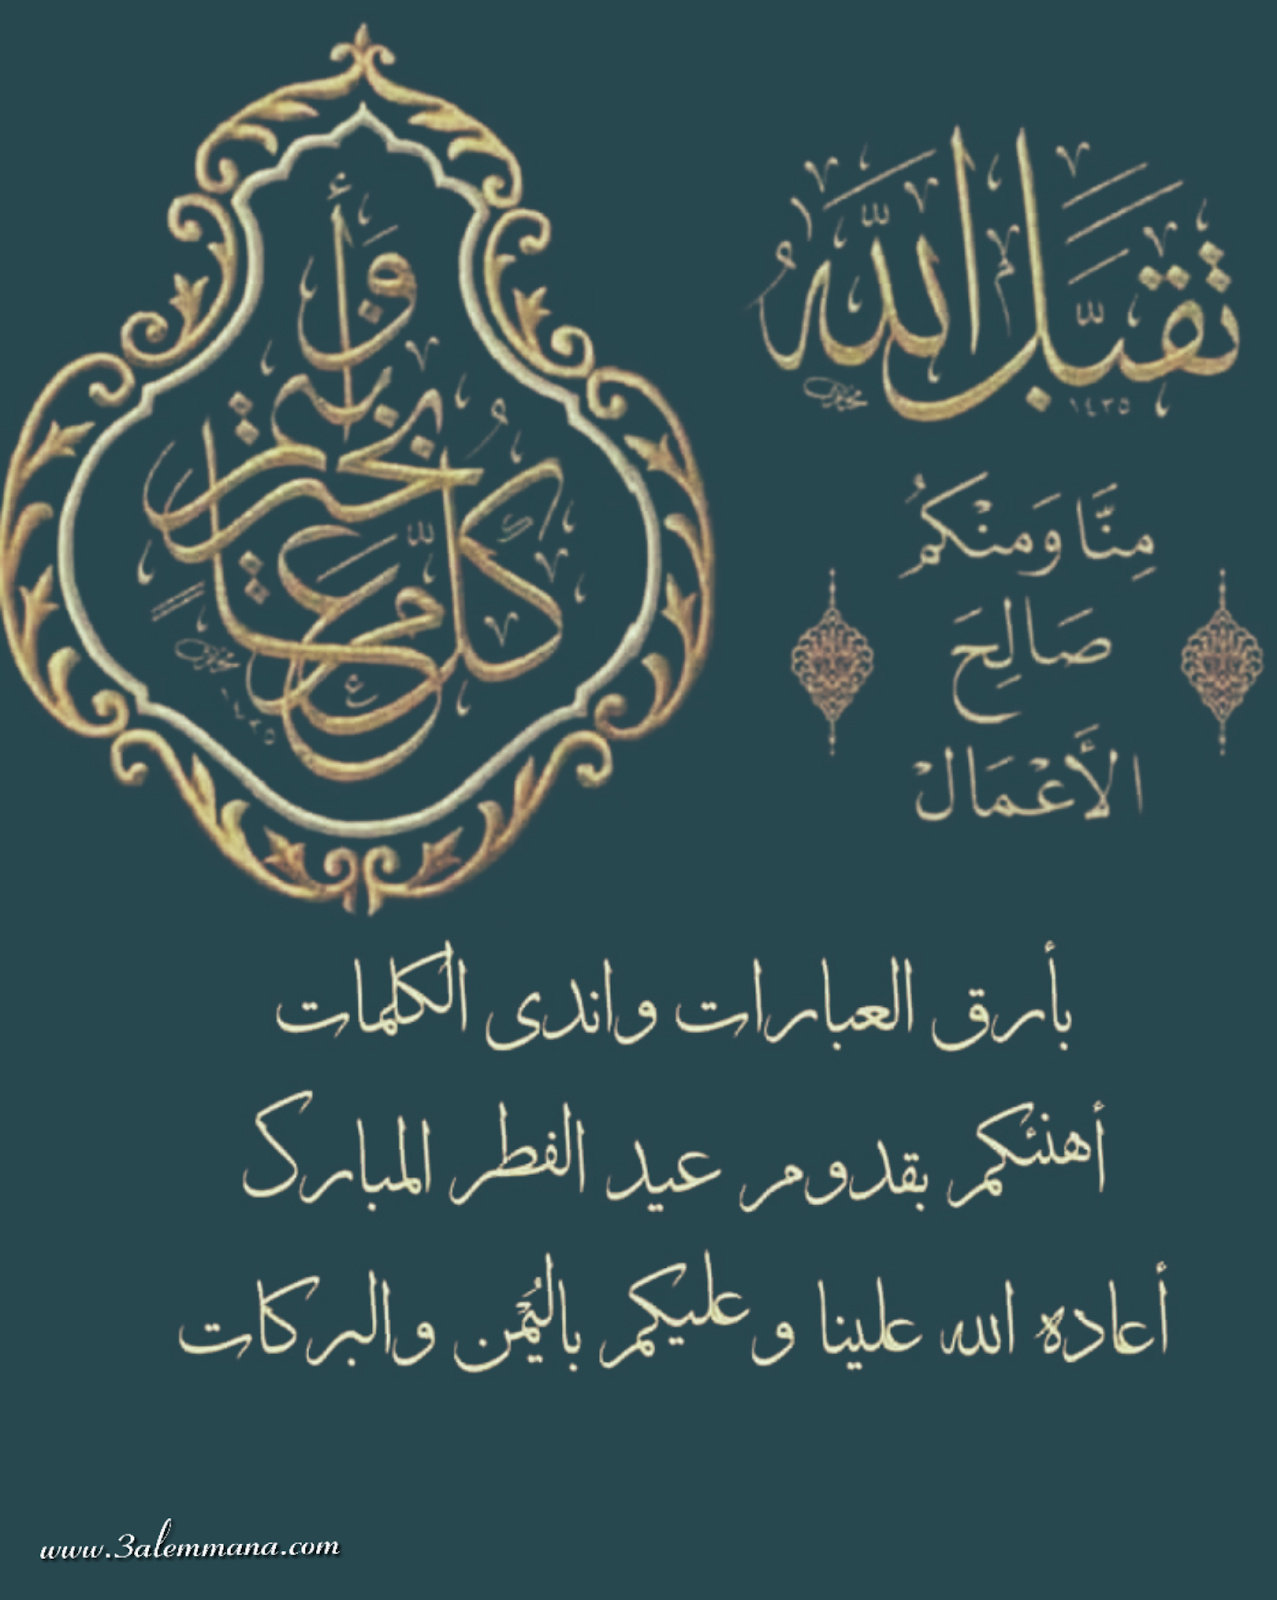 تقبل الله
١٤٣٥
مِنَّا وَمنْكمُ
صَالِحَ
الأَعْمَالْ
كل عام وأنتم بخير
١٤٣٥
بأرق العبارات واندى الكلمات
أهنئكم بقدوم عيد الفطر المبارك
أعاده الله علينا وعليكم باليُمْن والبركات
www.3alemmana.com